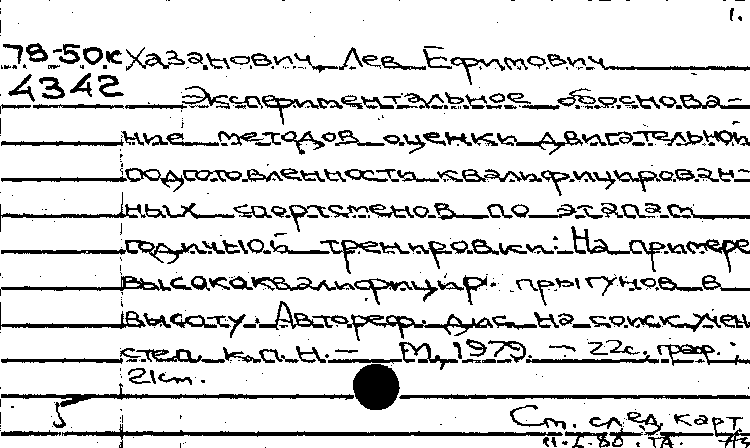 1.
79-50к Хазанович, Лев Ефимович
4342 Экспериментальное обоснова-
ние методов оценки двигательной
подготовленности квалифицирован-
ных спортсменов по этапам
годичной тренировки: На примере
высококвалифицир. прыгунов в
высоту. Автореф. дис. на соиск. учен
степ. к.п.н. — М., 1979. — 22с. граф.;
21см.
5
См. след. карт